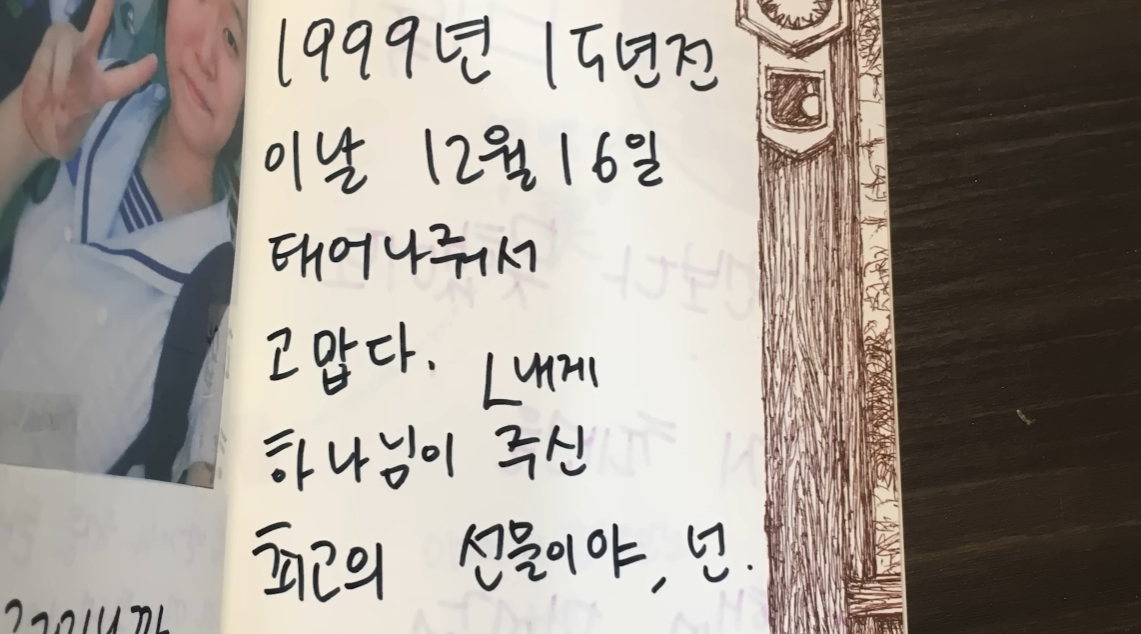 1999년 15년전
이날 12월 16일
태어나줘서
고맙다.
내게
하나님이 주신
최고의 선물이야, 넌.